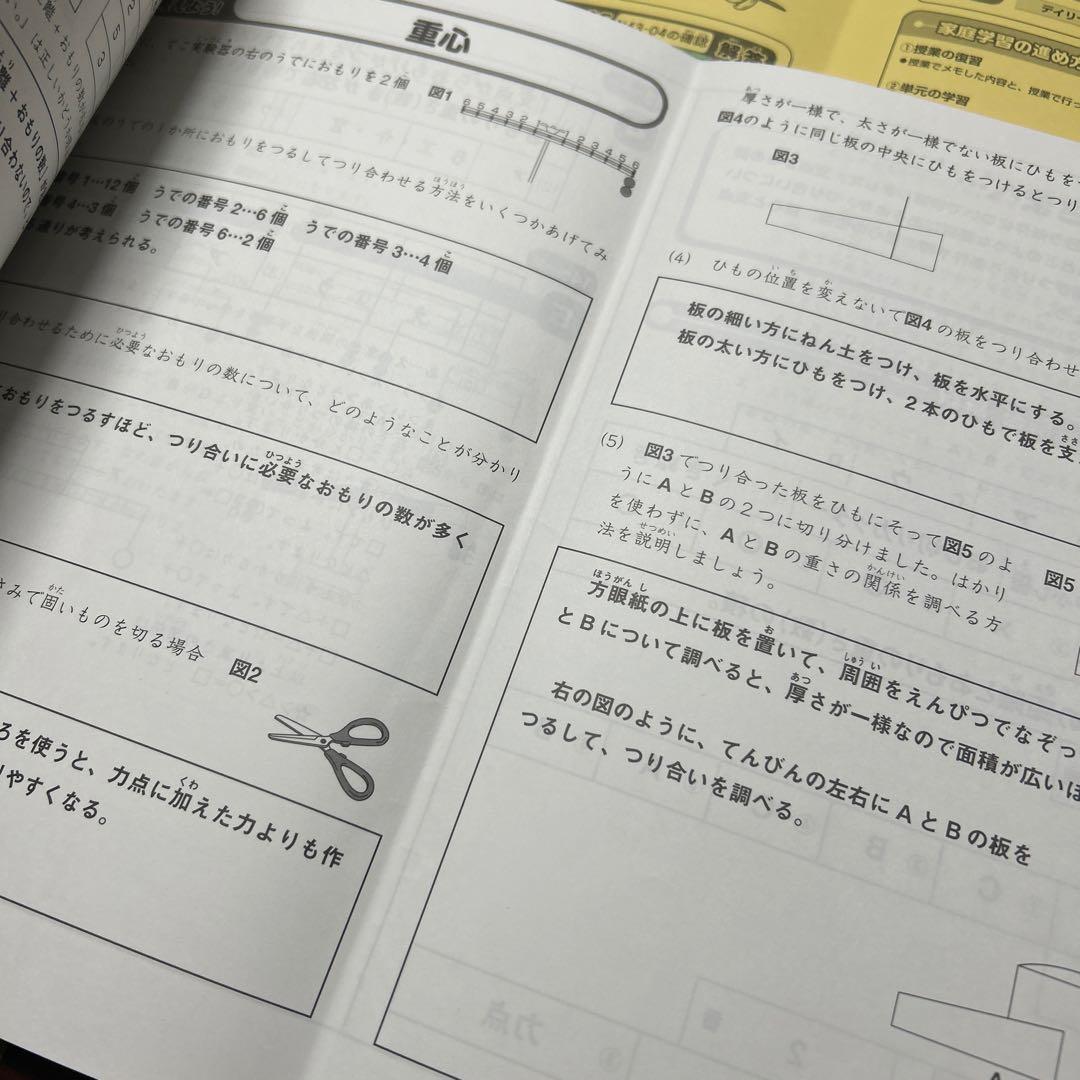 重心
てこ実験器の右のうでにおもりを2個 図1
6 5 4 3 2 1 1 2 3 4 5 6
のうでの1か所におもりをつるしてつり合わせる方法をいくつかあげてみ
号1…12個 うでの番号2…6個 うでの番号3…4個
号4…3個 うでの番号6…2個
通りが考えられる。
り合わせるために必要なおもりの数について、どのようなことが分かり
おもりをつるすほど、つり合いに必要なおもりの数が多く
さみで固いものを切る場合 図2
ろを使うと、力点に加えた力よりも作
りやすくなる。
厚さが一様で、太さが一様でない板にひもを
図4のように同じ板の中央にひもをつけるとつり
図3
(4) ひもの位置を変えないで図4の板をつり合わせ
板の細い方にねん土をつけ、板を水平にする。
板の太い方にひもをつけ、2本のひもで板を支
(5) 図3でつり合った板をひもにそって図5のよ
うにAとBの2つに切り分けました。はかり
を使わずに、AとBの重さの関係を調べる方
法を説明しましょう。
図5
方眼紙の上に板を置いて、周囲をえんぴつでなぞっ
とBについて調べると、厚さが一様なので面積が広いほ
右の図のように、てんびんの左右にAとBの板を
つるして、つり合いを調べる。
A
解答
デイリー
家庭学習の進め方
①授業の復習
●授業でメモした内容と、授業で行っ
②単元の学習